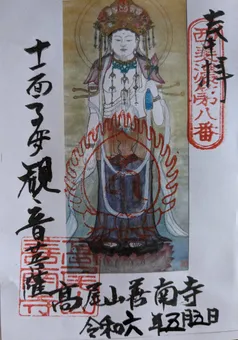 奉拝
第八番
十一面千手観音菩薩
高屋山善南寺
令和六年五月五日